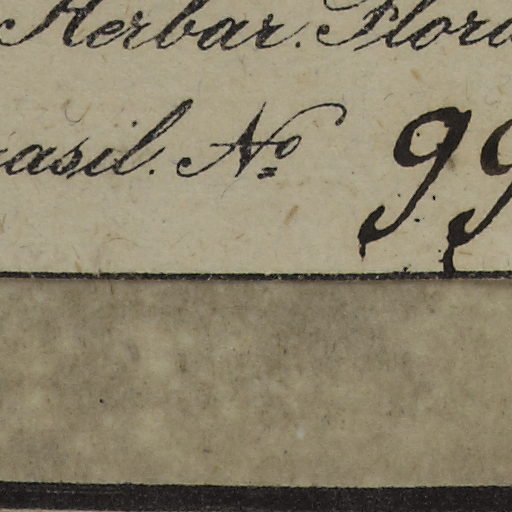 Herbar. Flora
asil. No 99